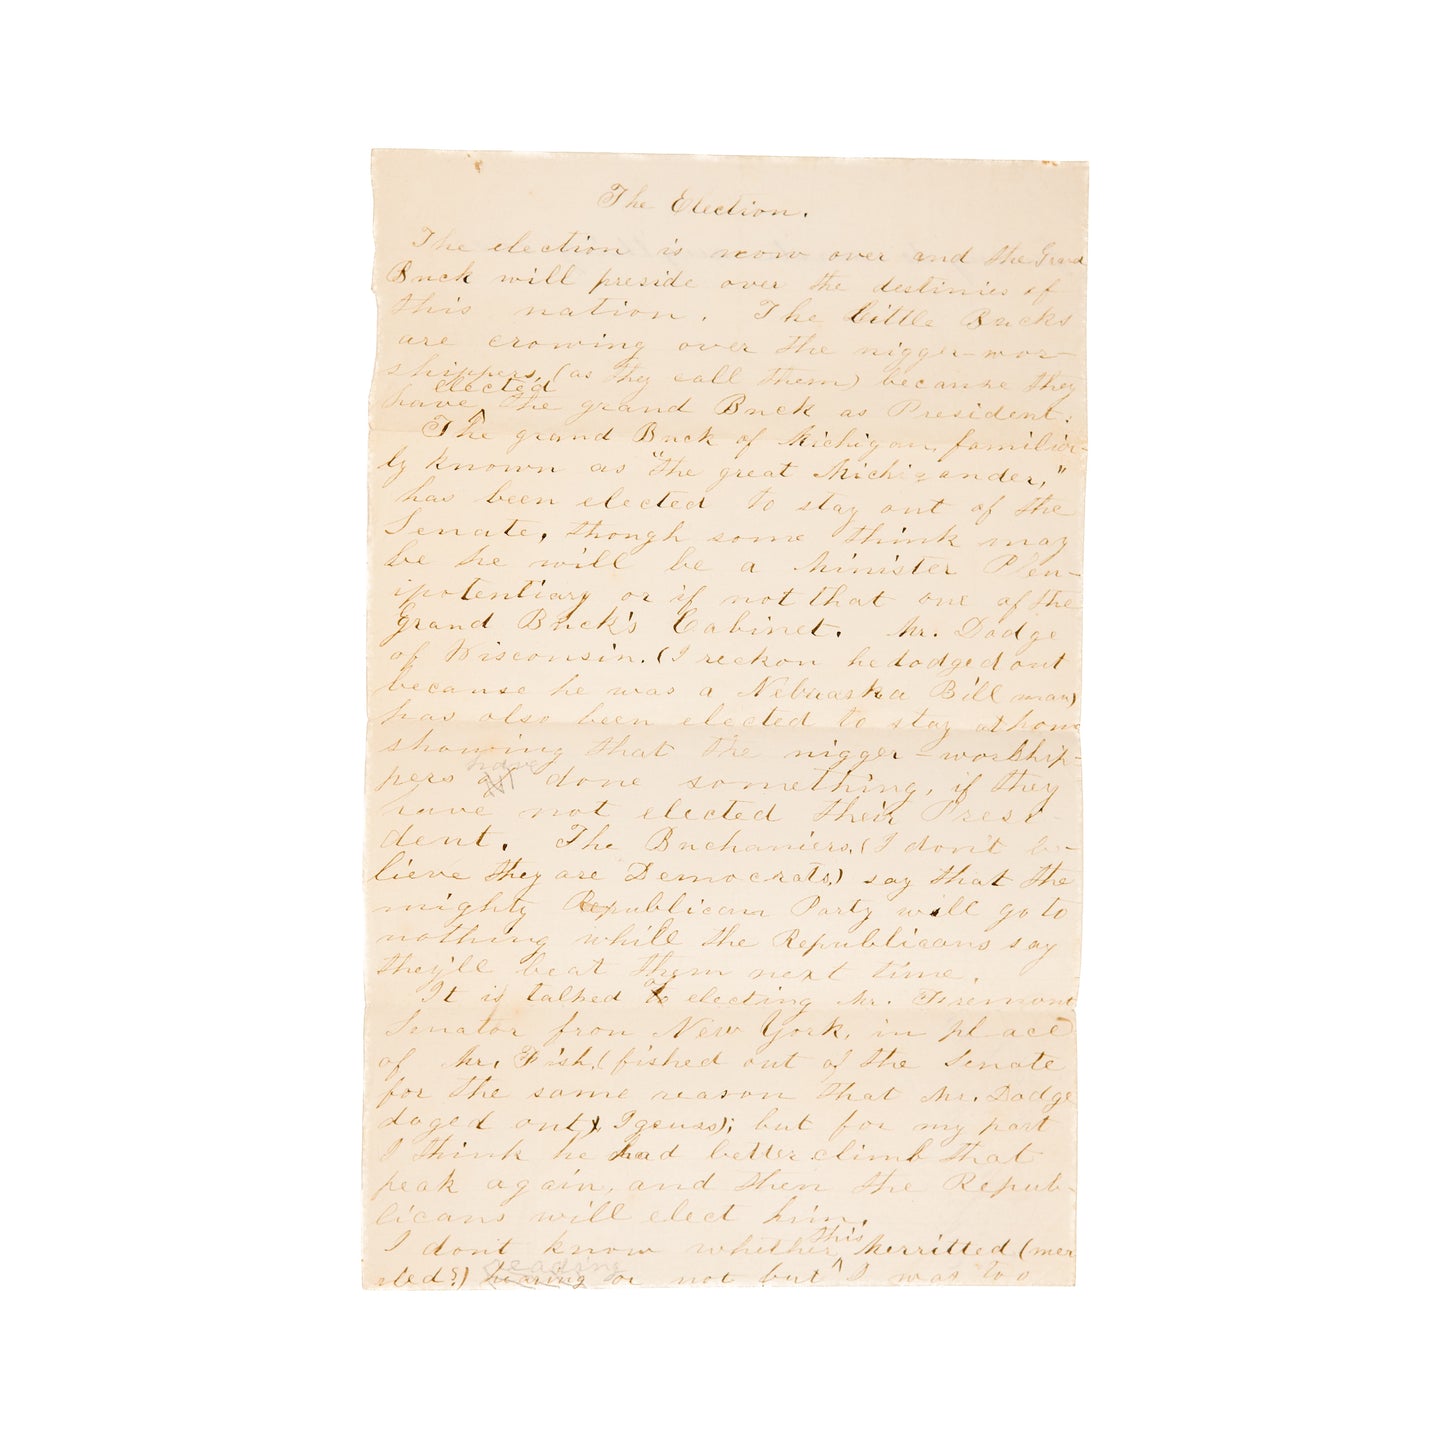 The Election.
The election is now over and the Grand
Buck will preside over the destinies of
this nation. The Little Bucks
are crowing over the nigger-wor-
shippers, (as they call them) because they
elected
have ^ the grand Buck as President.
The grand Buck of Michigan, familiar-
ly known as "the great Michigander,"
has been elected to stay out of the
Senate, though some think may
be he will be a Minister Plen-
ipotentiary or if not that one of the
Grand Buck's Cabinet. Mr. Dodge
of Wisconsin. (I reckon he dodged out
because he was a Nebraska Bill man)
has also been elected to stay at home
showing that the nigger-worship-
have
pers done something, if they
have not elected their Presi-
dent. The Buchaniers, (I don't be-
lieve they are Democrats,) say that the
mighty Republican Party will go to
nothing while the Republicans say
they'll beat them next time.
of
It is talked electing Mr. Firemont
Senator from New York, in place
of Mr. Fish, (fished out of the Senate
for the same reason that Mr. Dodge
doged out, I geuss); but for my part
I think he had better climb that
peak again, and then the Repub-
licans will elect him.
this
I dont know whether ^ merritted (mer
reading
ited?) hearing or not but I was too